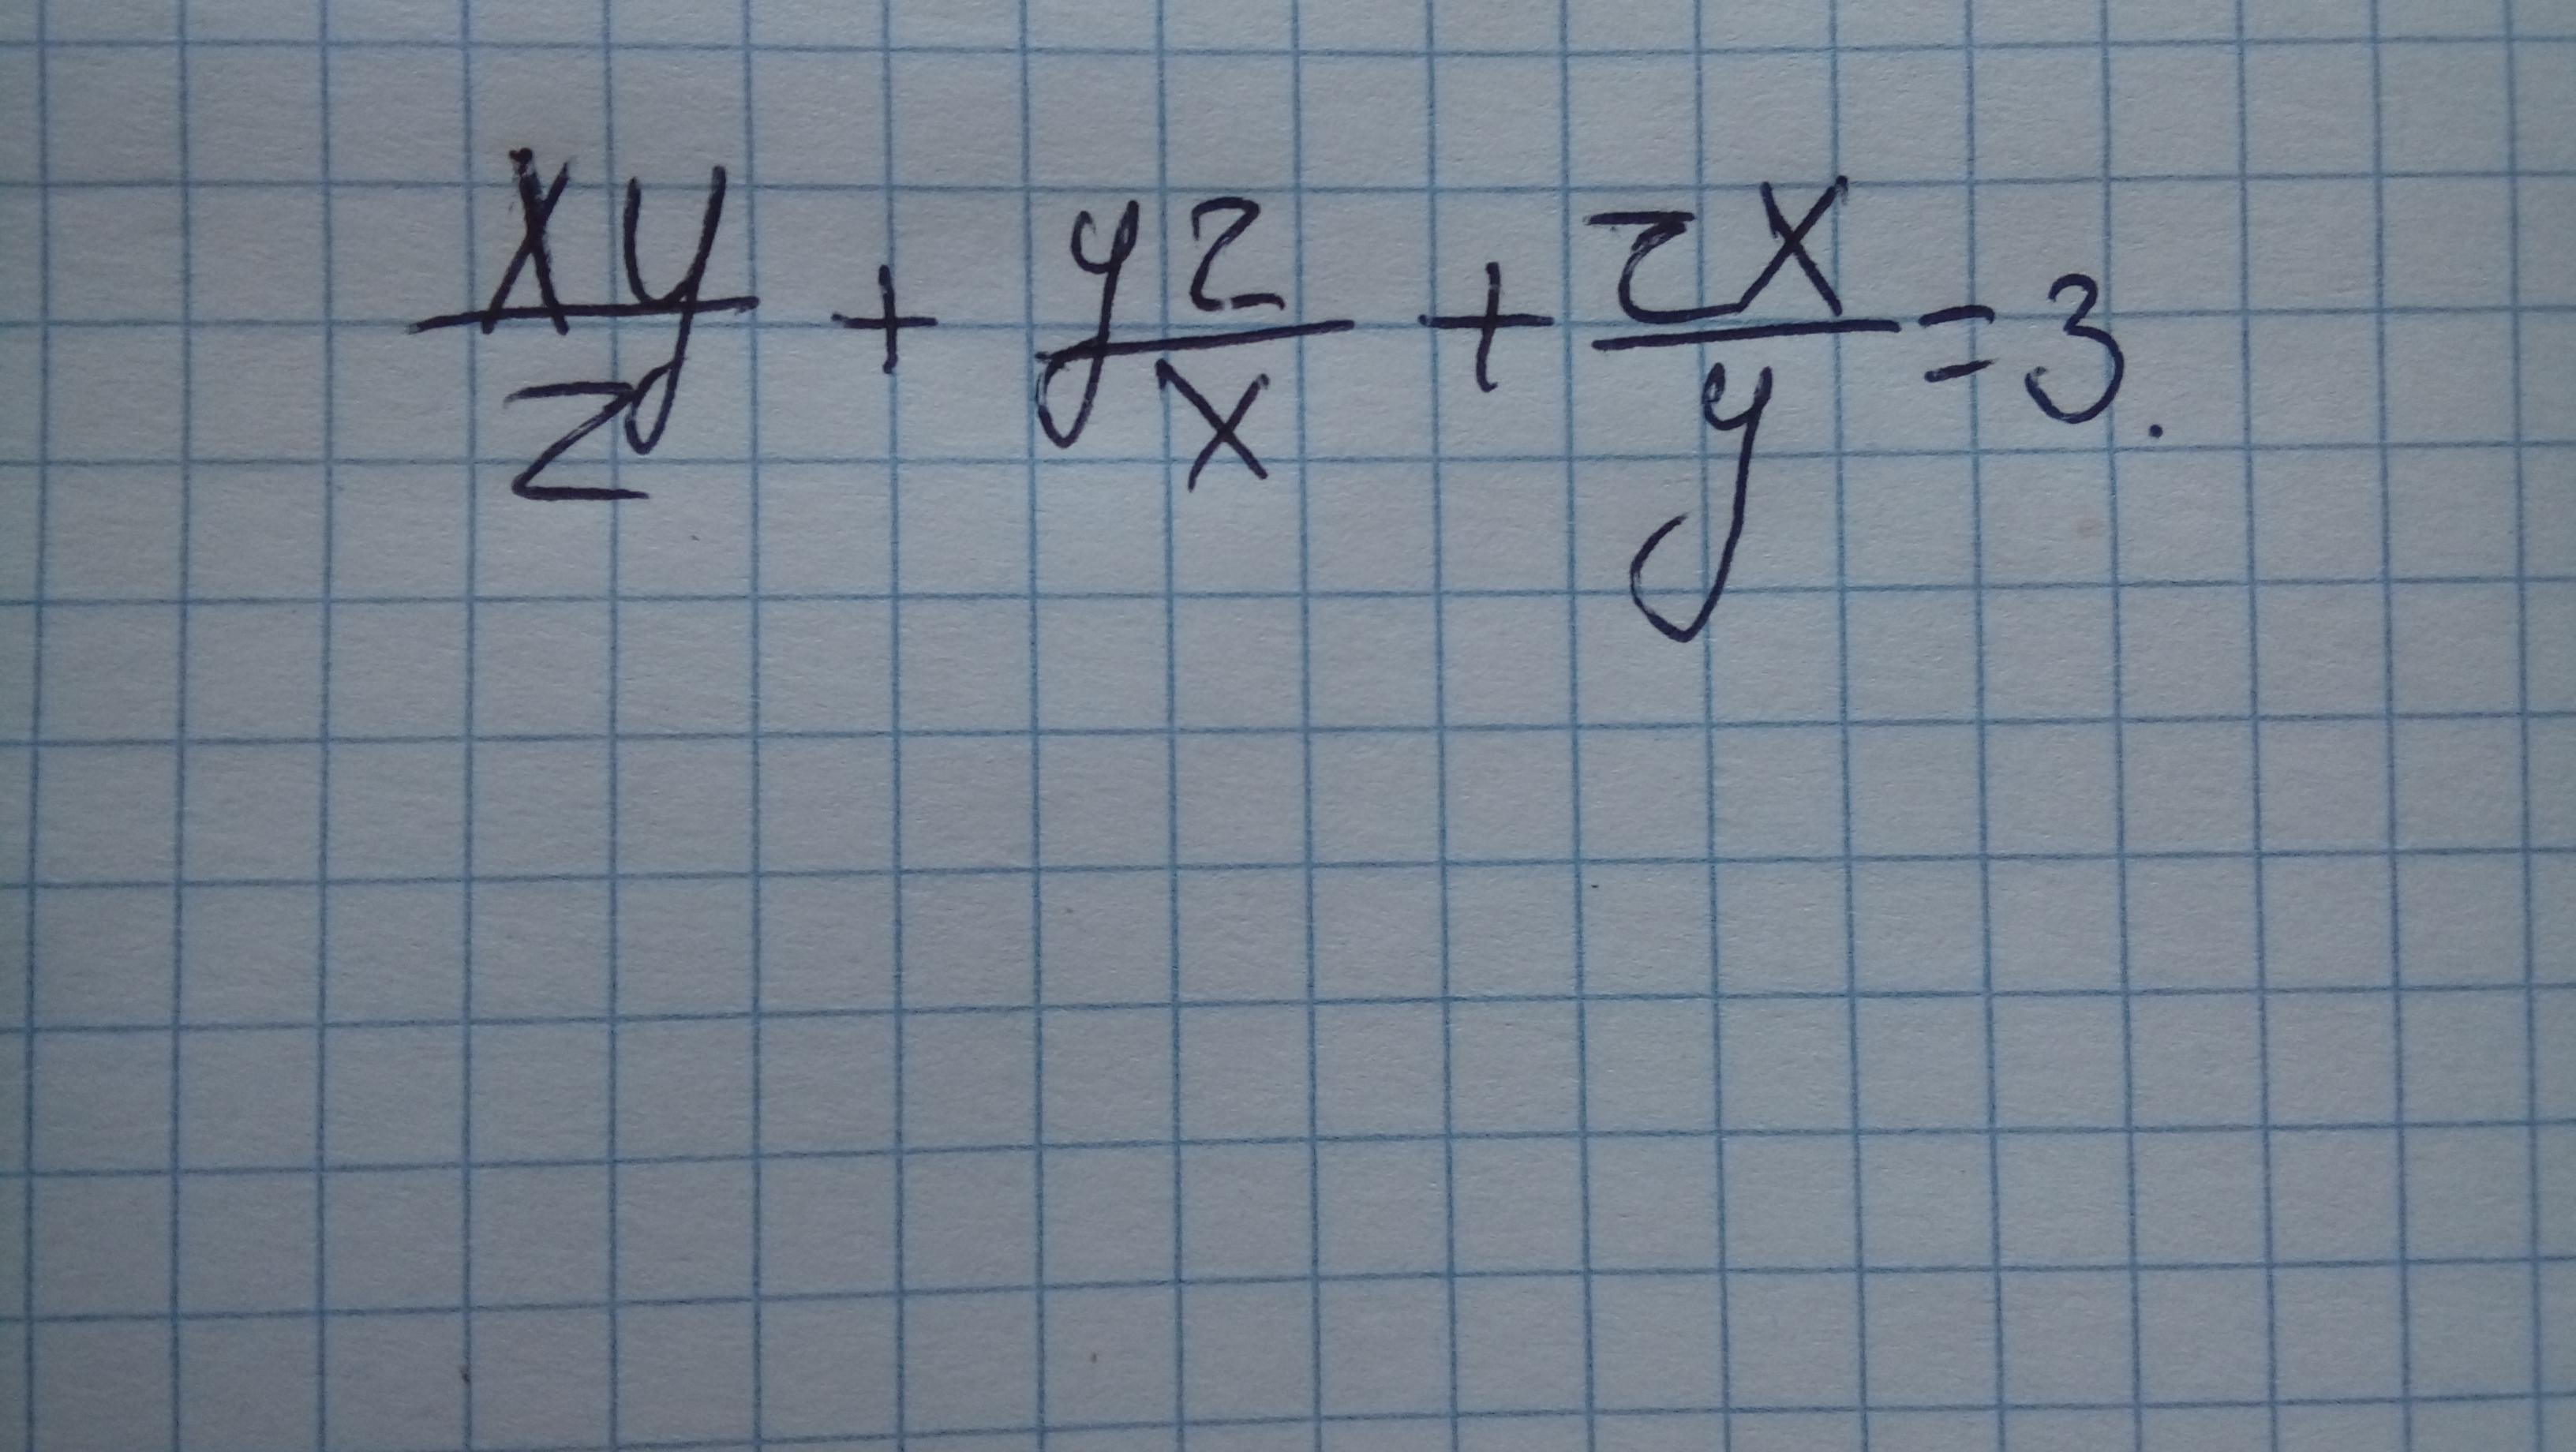 xy/z + yz/x + zx/y = 3.